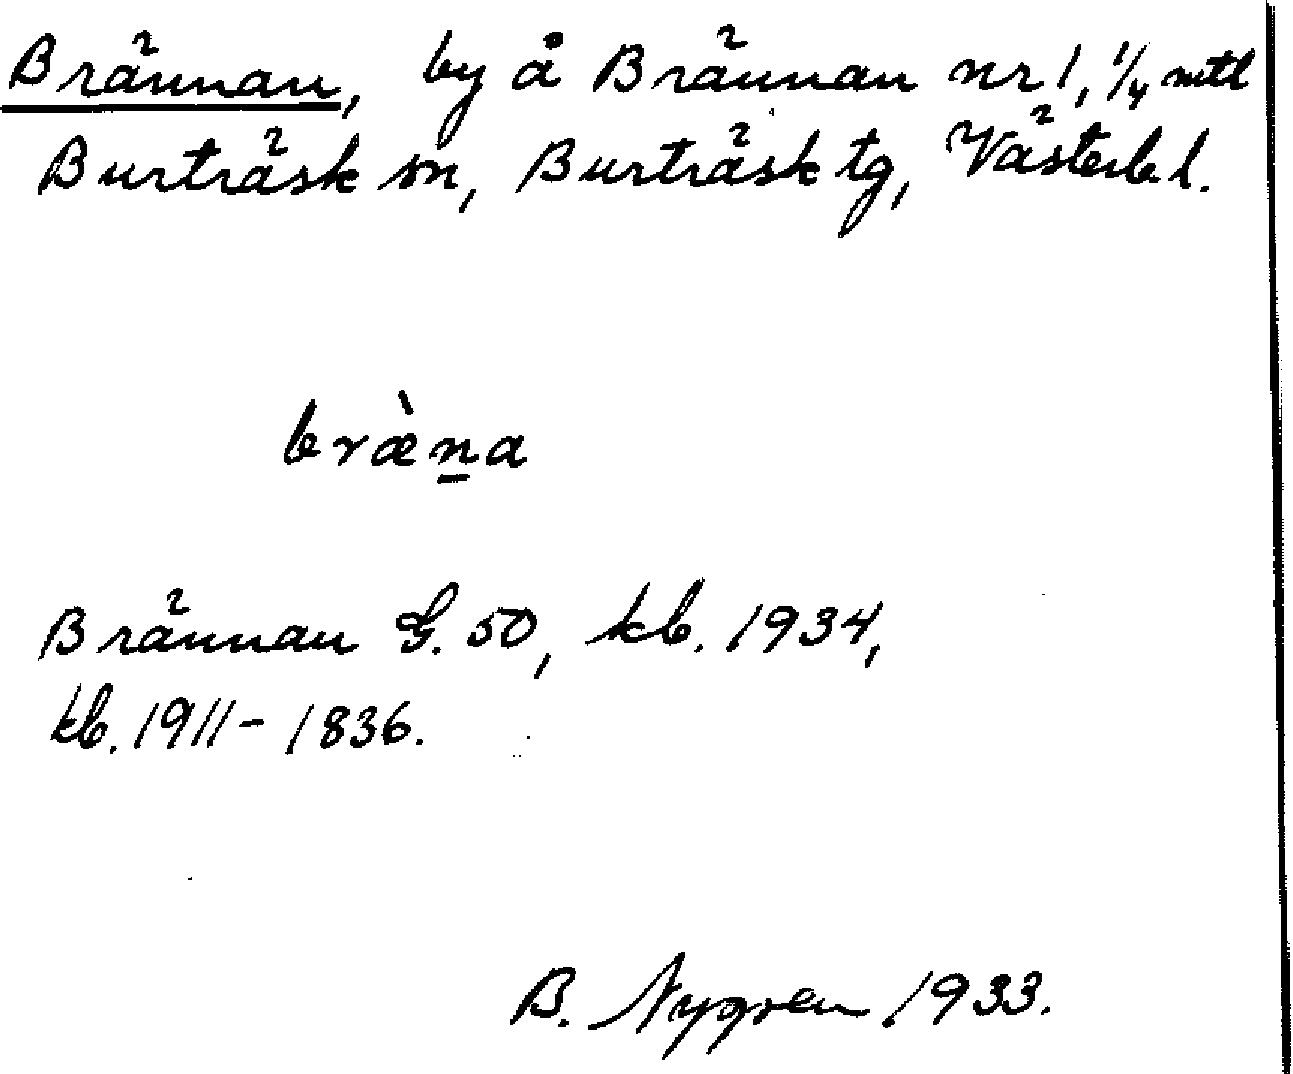 Brännan, by å Brännan nr 1, 1/4 mtl
Burträsk sn, Burträsk tg, Västerb. l.
bræ̀n̠a
Brännan G. 50, kb. 1934,
kb. 1911-1836.
B. Nygren 1933.